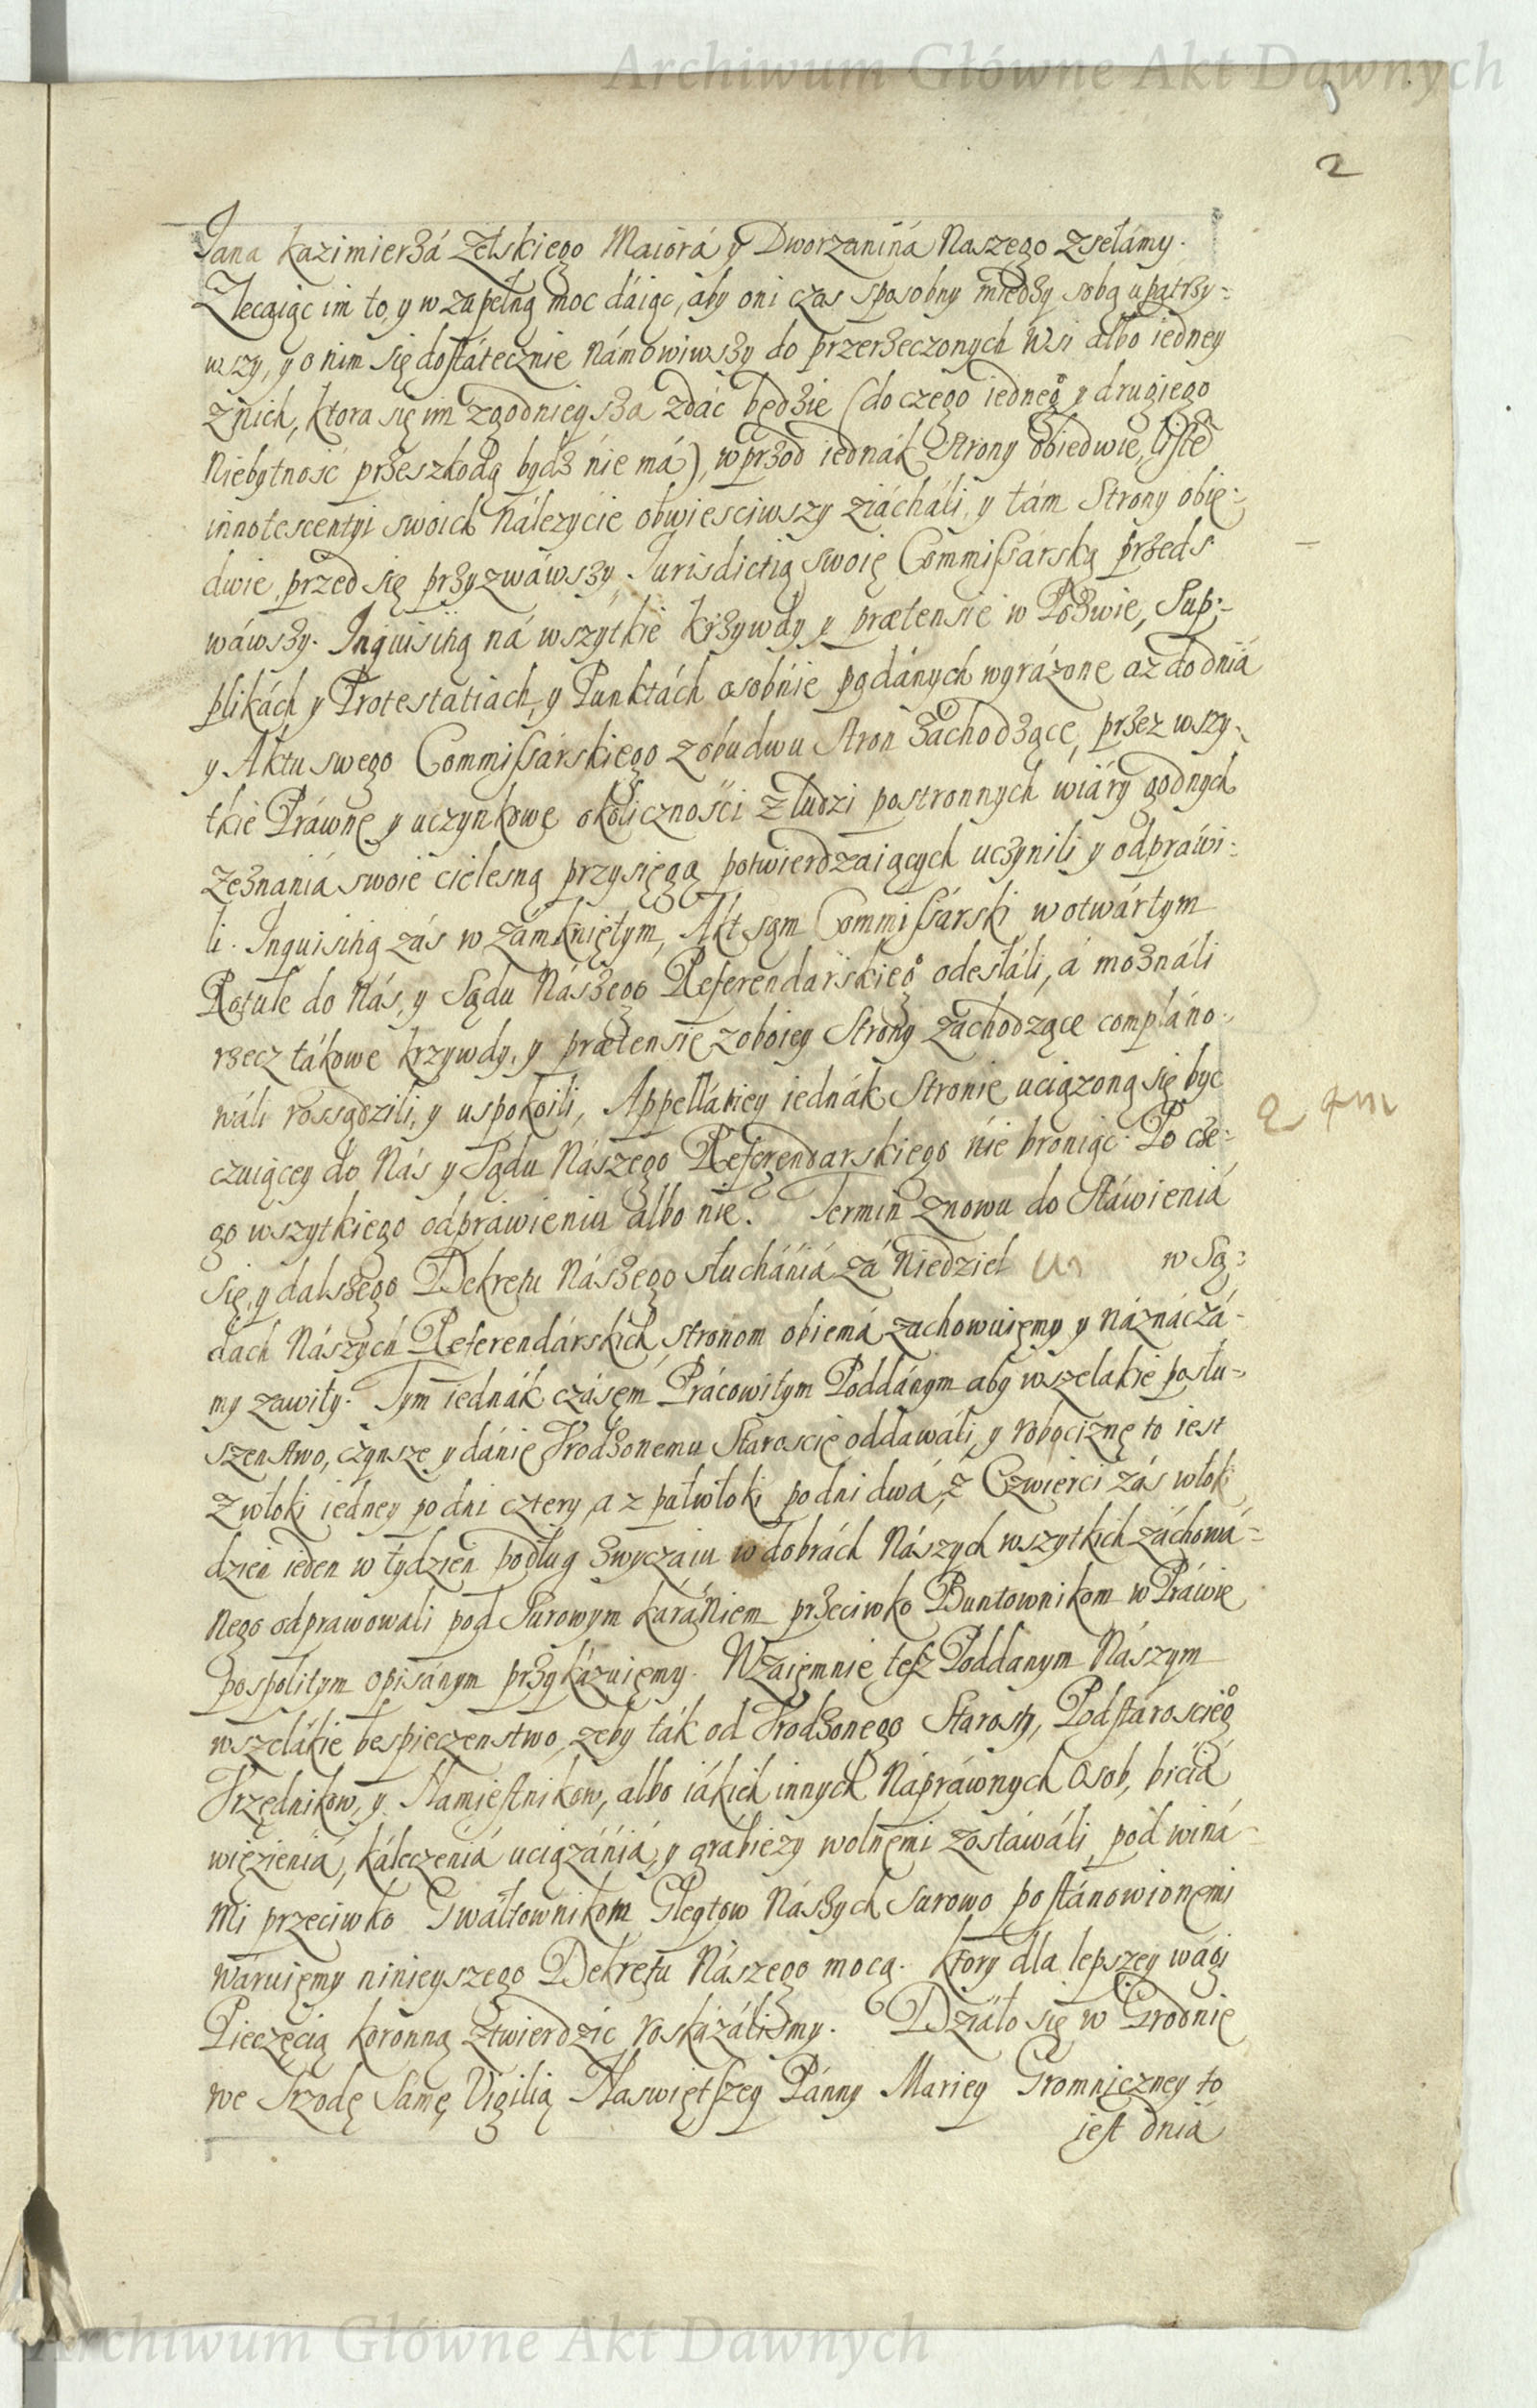 Archiwum Główne Akt Dawnych
2
Jana Kazimierzá Zelskiego Maiorá y Dworzaniná Naszego zsełámy.
Zlecaiąc im to, y w zupełną moc dáiąc, aby oni czas sposobny między sobą upatrzy-
wszy, y o nim się dostátecznie námowiwszy do przerzeczonych Wsi albo iedney
z nich, ktora się im zgodnieysza zdáć będzie (do czego iedneg° y drugiego
Niebytność przeszkodą bydź nie má), wprzod iednák Strony obiedwie, Liste
innotescentyi swoich nálezycie obwiesciwszy ziácháli, y tám Strony obie-
dwie przed się przyzwáwszy. Jurisdictią swoię Commissárską przeds
wáwszy. Inquisitią ná wszytkie krzywdy y prætensie w Pozwie, Sup-
plikách y Protestatiach, y Punktách osobnie podánych wyrázone az do dniá
y Aktu swego Commissárskiego z obudwu stron záchodzące, przez wszy-
tkie Práwne y uczynkowe okoliczności z ludzi postronnych wiáry godnych
Zeznániá swoie cielesną przysięgą potwierdzaiących uczynili y odpráwi-
li. Inquisitią zás w zámkniętym, Akt sąm Commissárski w otwártym
Rotule do Nás, y Sądu Nászego Referendárskieg° odesłáli, á moználi
rzecz tákowe krzywdy, y prætensie z oboiey Strony záchodzące compláno-
wáli rossądzili, y uspokoili, Appellátiey iednák Stronie uciązoną się być
czuiącey do Nás y Sądu Nászego Referendarskiego nie broniąc. Po cze-
go wszytkiego odpráwieniu albo nie. Termin znowu do Stáwieniá
się, y dalszego Dekretu Nászego słuchániá zá Niedziel w Są-
dach Nászych Referendárskich, stronom obiemá zachowuiemy y náznáczá-
my zawity. Tym iednák czásem Prácowitym Poddánym aby wszelakie posłu-
szenstwo, czynsze y dánie Urodzonemu Staroscie oddawáli, y robociznę to iest
z włoki iedney po dni cztery, a z pułwłoki po dni dwá, z Czwierci zás włoki
dzień ieden w tydzień podług zwyczaiu w dobrách Nászych wszytkich záchowá-
nego odprawowali pod Surowym karániem przeciwko Buntownikom w Práwie
pospolitym opisánym przykázuiemy. Wzaiemnie tesz Poddanym Nászym
wszelákie bespieczenstwo, zeby ták od Urodzonego Starosty, Podstarościeg°
Urzędnikow, y Namiestnikow, albo iákich innych Náprawnych Osob, biciá
więzieniá, káleczeniá uciązániá, y grábiezy wolnemi zostáwáli, pod winá-
mi przeciwko Gwałtownikom Gleytow Nászych surowo postánowionemi
waruiemy ninieyszego Dekretu Nászego mocą. Ktory dla lepszey wági
Pieczęcią koronną ztwierdzic roskázálismy. Działo się w Grodnie
we Srzodę Samę Vigilią Naswiętszey Pánny Mariey Gromniczney to
iest dniá
Archiwum Główne Akt Dawnych